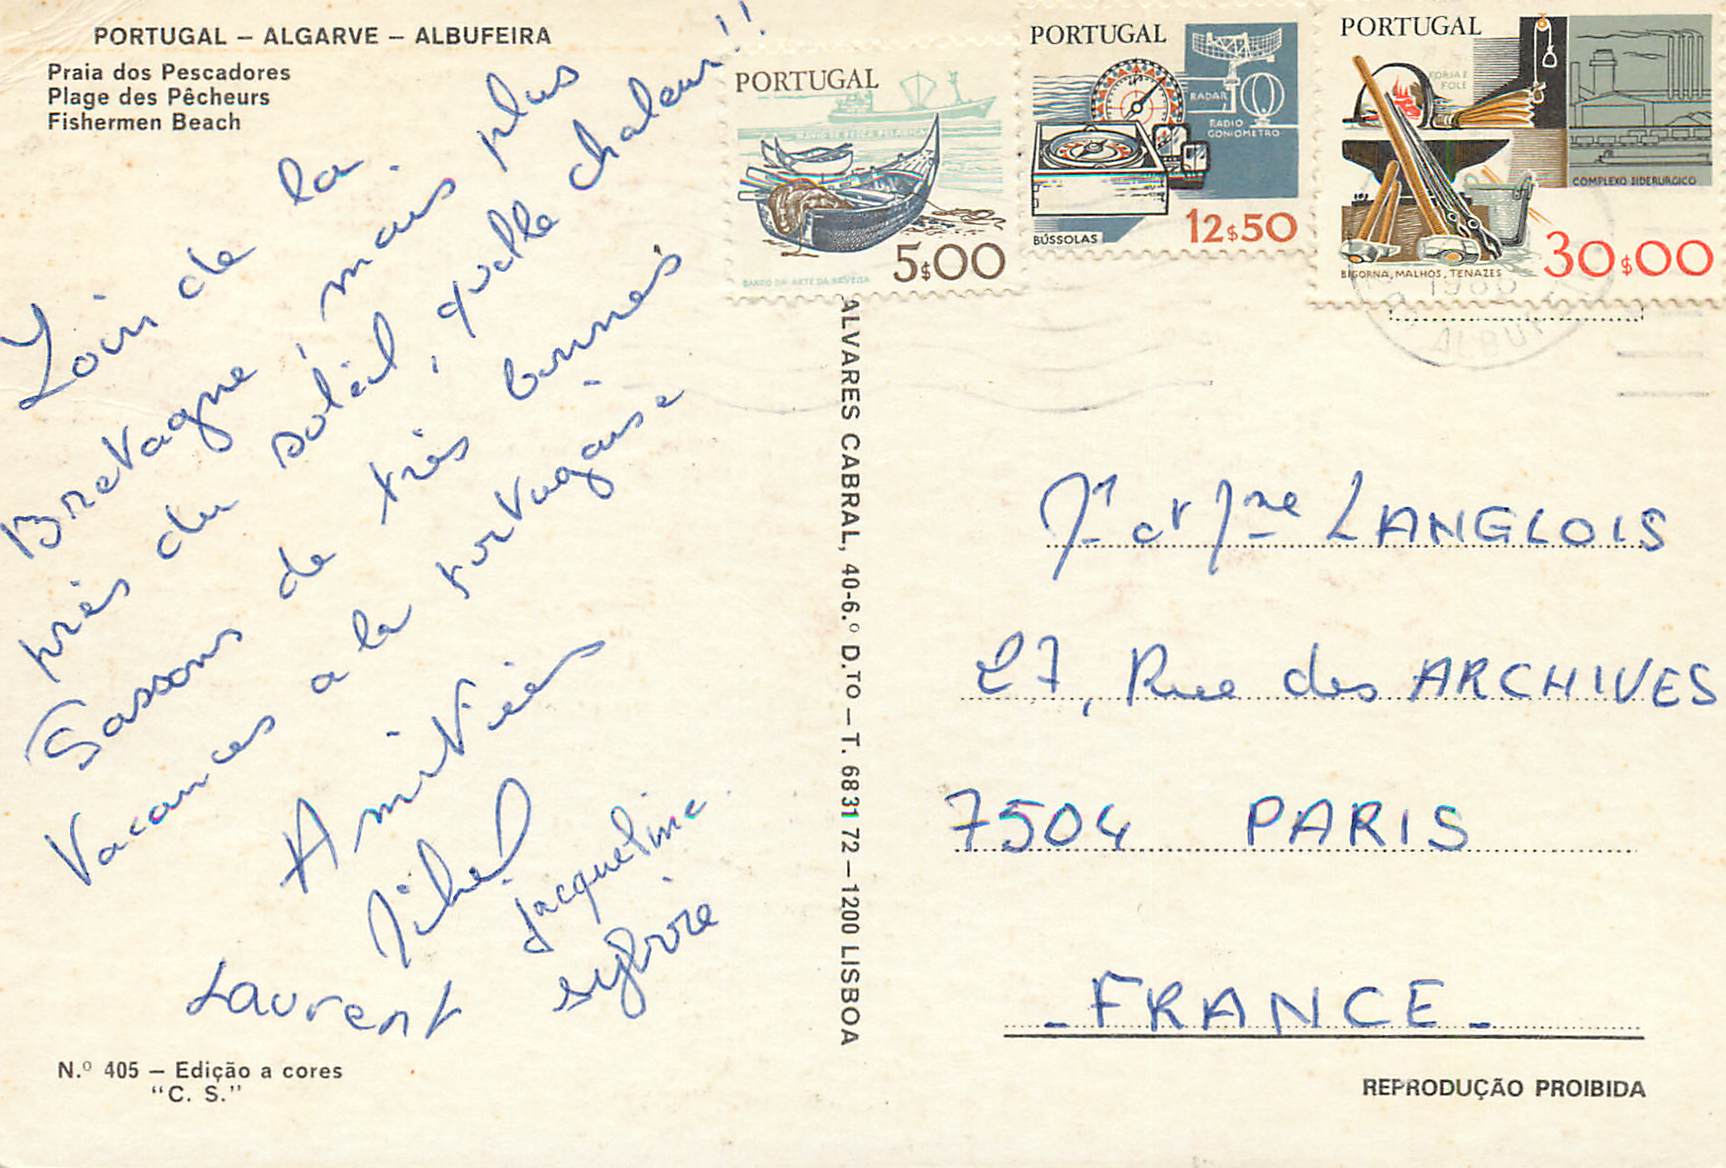 PORTUGAL – ALGARVE – ALBUFEIRA
Praia dos Pescadores
Plage des Pêcheurs
Fishermen Beach
Loin de la
Bretagne, mais plus
près du soleil, quelle chaleur!!
Passons de très bonnes
Vacances a la portugaise
Amitiés
Michel
Jacqueline
Laurent
sylvie
N.º 405 – Edição a cores
"C. S."
ALVARES CABRAL, 40-6.º D.TO – T. 6831 72 – 1200 LISBOA
PORTUGAL
NAVIO DE PESCA
5$00
BARCO DA ARTE DA XÁVEGA
PORTUGAL
RADAR
RADIO
GONIOMETRO
BÚSSOLAS
12$50
PORTUGAL
FORJA E
FOLE
COMPLEXO SIDERURGICO
BIGORNA, MALHOS, TENAZES
30$00
ALBUF
Mr et Mme LANGLOIS
27, Rue des ARCHIVES
7504 PARIS
- FRANCE -
REPRODUÇÃO PROIBIDA